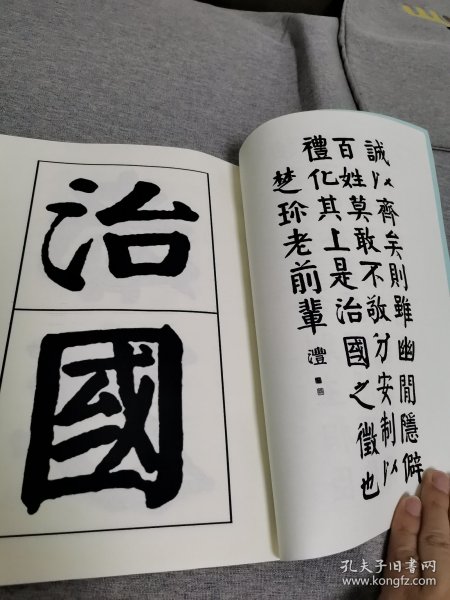 誠以齊矣則雖幽閒隱僻
百姓莫敢不敬分安制以
禮化其上是治國之徵也
楚珍老前輩
澧
治
國
孔夫子旧书网
www.kongfz.com